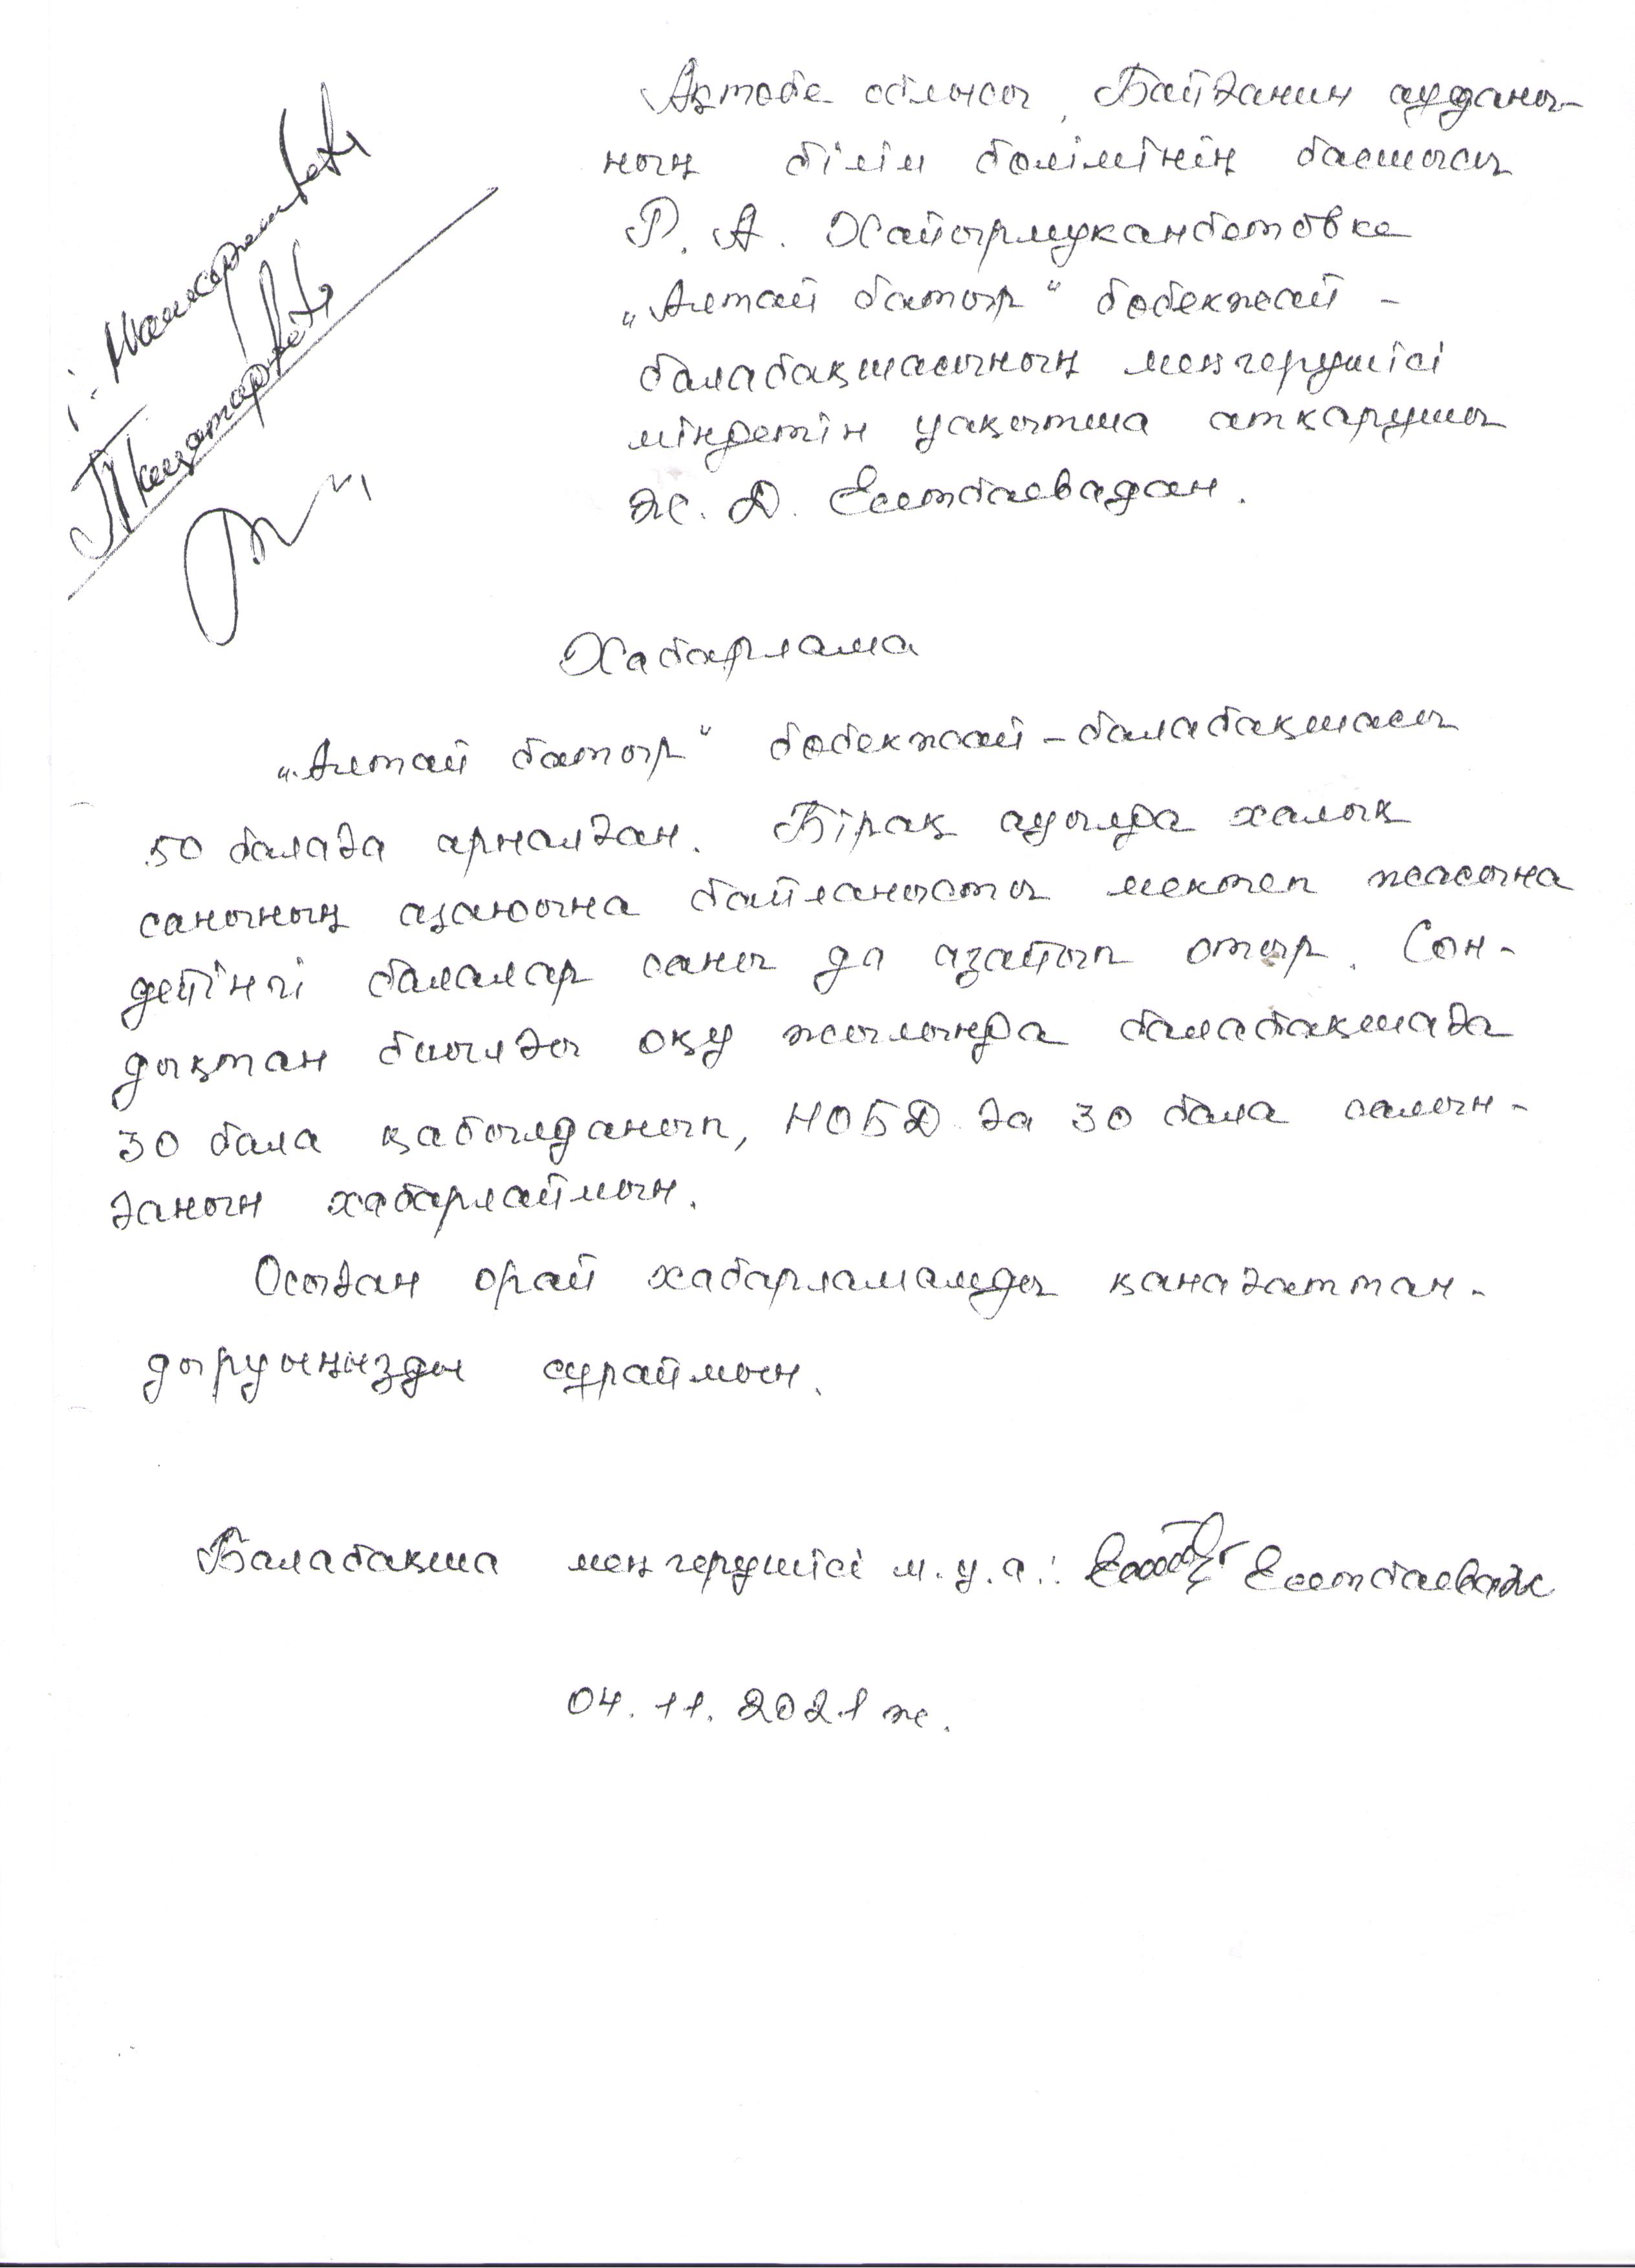 Ақтөбе облысы, Байғанин ауданы-
ның білім бөлімінің басшысы
Р. А. Хайырмуканбетовке
„Алтай батыр" бөбекжай -
балабақшасының меңгерушісі
міндетін уақытша атқарушы
Ж. Д. Есетбаевадан.
Хабарлама
„Алтай батыр" бөбекжай - балабақшасы
50 балаға арналған. Бірақ ауылда халық
санының азаюына байланысты мектеп жасына
дейінгі балалар саны да азайып отыр. Сон-
дықтан биылғы оқу жылында балабақшаға
30 бала қабылданып, НОБД ға 30 бала салын-
ғанын хабарлаймын.
Осыған орай хабарламамды қанағаттан-
дыруыңызды сұраймын.
Балабақша меңгерушісі м.у.а.: Есетбаева Ж
04. 11. 2021 ж.